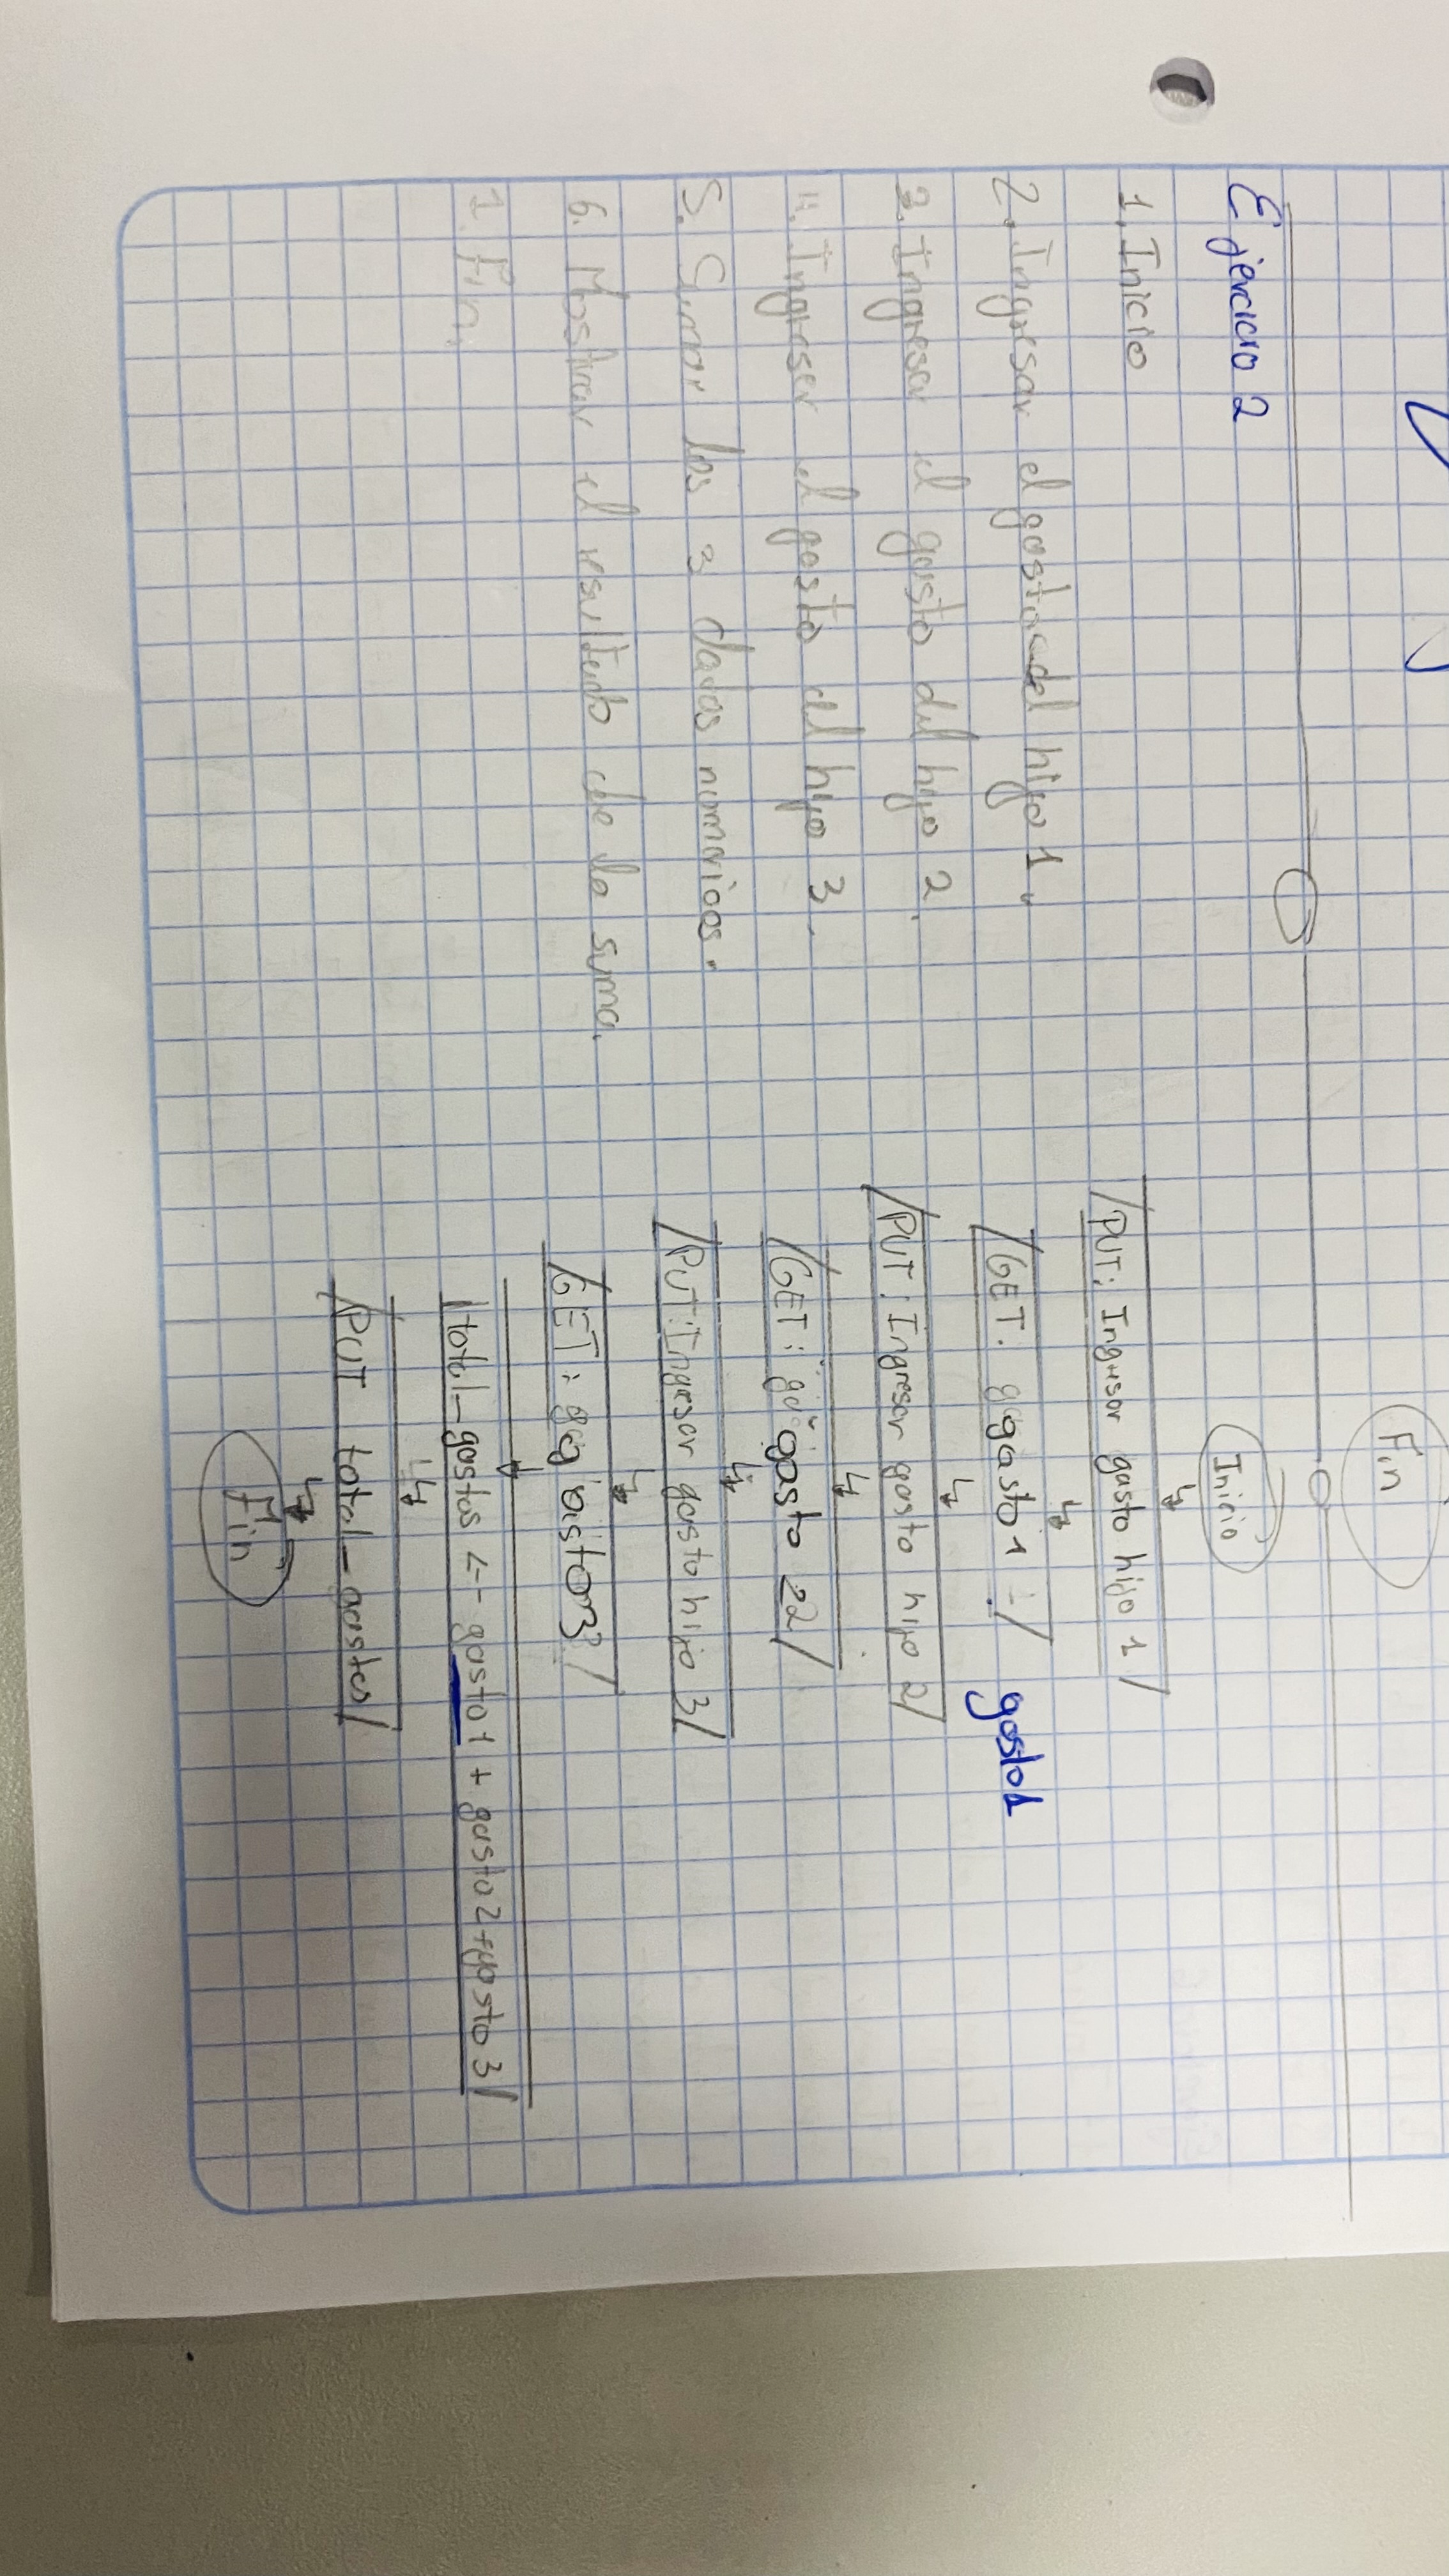 Fin
Ejercicio 2
1. Inicio
2. Ingresar el gasto del hijo 1.
3. Ingresar el gasto del hijo 2.
4. Ingresar el gasto del hijo 3.
5. Sumar los 3 datos numericos.
6. Mostrar el resultado de la suma.
7. Fin.
Inicio
PUT: Ingresar gasto hijo 1
GET: gasto1
gasto1
PUT: Ingresar gasto hijo 2
GET: gasto 2
PUT: Ingresar gasto hijo 3
GET: gasto3
total_gastos <- gasto1 + gasto2 + gasto3
PUT total_gastos
Fin